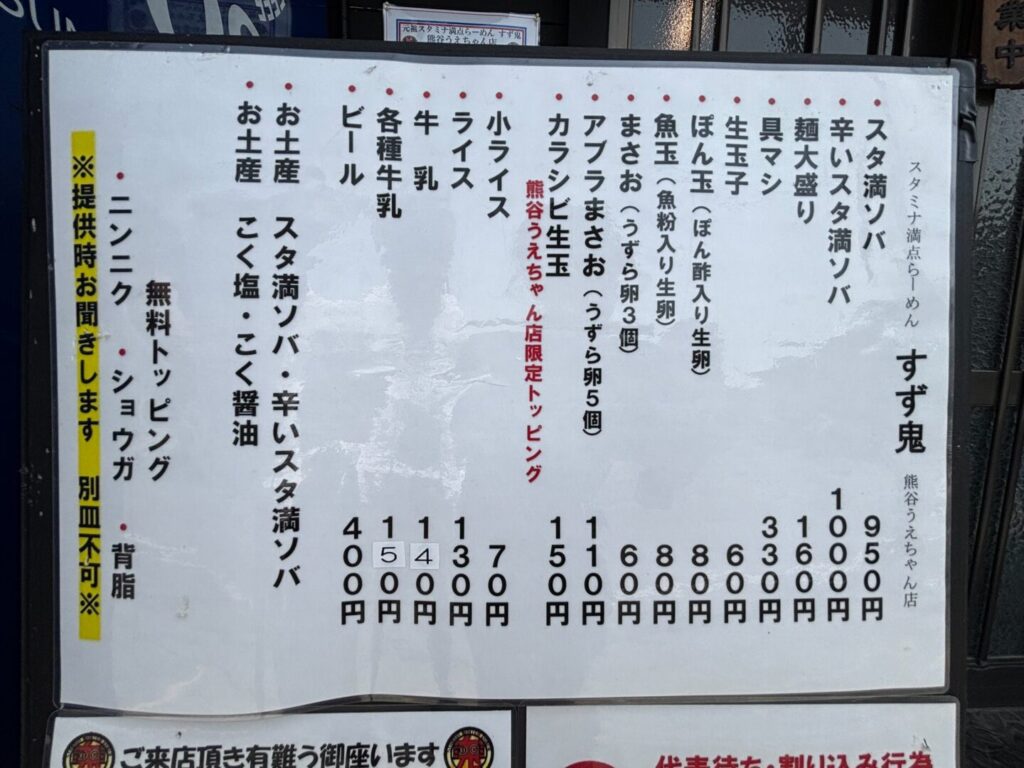 元祖スタミナ満点らーめん すず鬼
熊谷うえちゃん店
業中
スタミナ満点らーめん すず鬼 熊谷うえちゃん店
・スタ満ソバ 950円
・辛いスタ満ソバ 1000円
・麺大盛り 160円
・具マシ 330円
・生玉子 60円
・ぽん玉(ぽん酢入り生卵) 80円
・魚玉(魚粉入り生卵) 80円
・まさお(うずら卵3個) 60円
・アブラまさお(うずら卵5個) 110円
・カラシビ生玉 150円
熊谷うえちゃん店限定トッピング
・小ライス 70円
・ライス 130円
・牛 乳 140円
・各種牛乳 150円
・ビール 400円
・お土産 スタ満ソバ・辛いスタ満ソバ
・お土産 こく塩・こく醤油
無料トッピング
・ニンニク ・ショウガ ・背脂
※提供時お聞きします 別皿不可※
ご来店頂き有難う御座います
代表待ち・割り込み行為